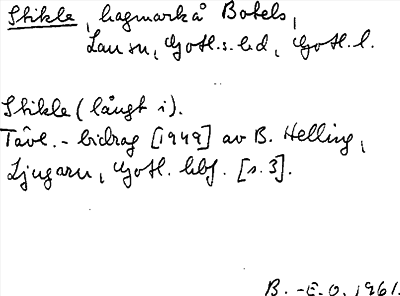 Stikle, hagmark å Botels,
Lau sn, Gotl. s. hd, Gotl. l.
Stikle (långt i).
Tävl.-bidrag [1949] av B. Helling,
Ljugarn, Gotl. hbf. [s. 3].
B.-E. O. 1961.